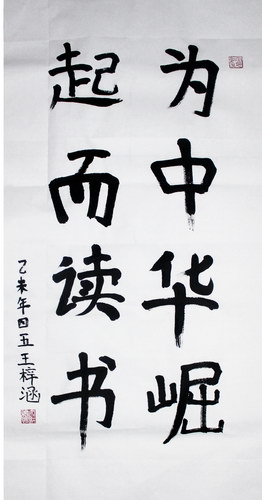 为中华崛
起而读书
乙未年四五王梓涵